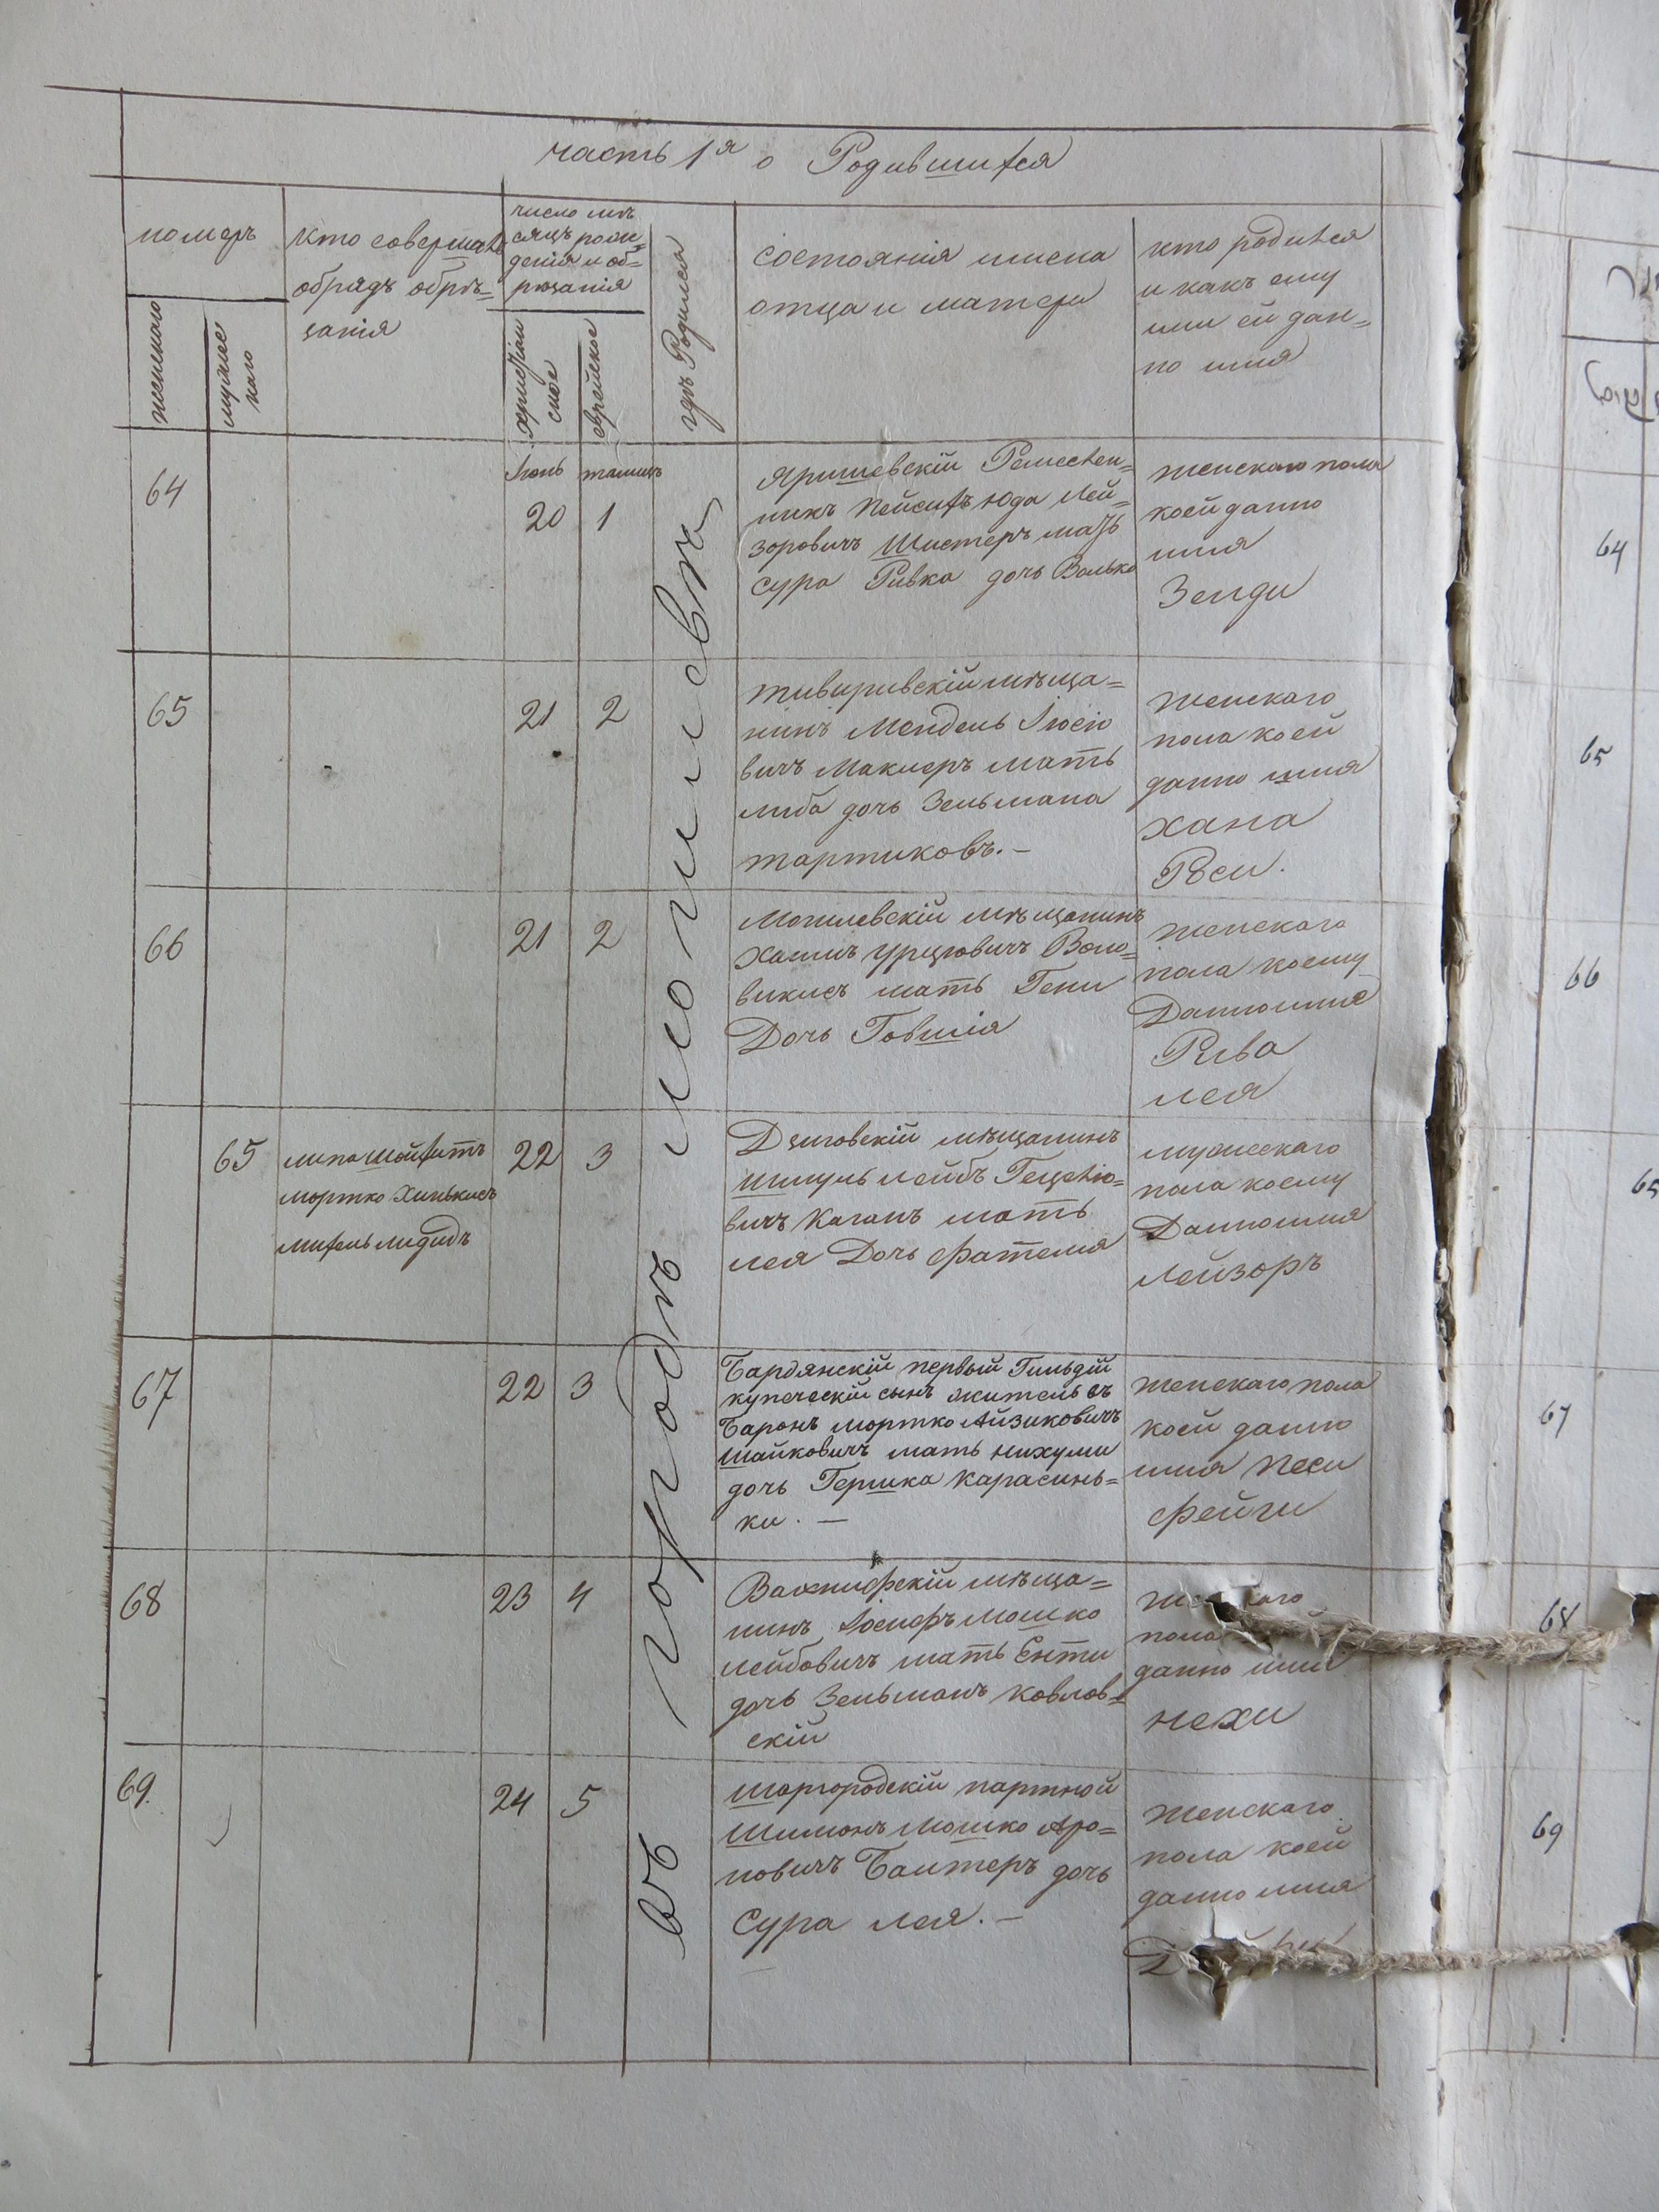 часть 1я о Родившихся
номеръ
женскаго
мужес
каго
кто совершалъ
обрядъ обрѣ=
занія
число мѣ
сяцъ рож=
денія и об=
рѣзанія
христіан
ское
еврейское
гдѣ Родился
состоянія имена
отца и матери
кто родился
и какъ ему
или ей дан=
но имя
въ городѣ могилевѣ
64
Іюнь тамузъ
20 1
Яришевскій Ремеслен=
никъ Пейсихъ Юда Лей=
зоровичъ Шистеръ мать
Сура Ривка дочь Волько
женскаго пола
коей данно
имя
Зенди
65
21 2
тивривскій мѣща=
нинъ Мендель Іосіо
вичъ Маклеръ мать
либа дочь Зельмана
тартиковъ.—
женскаго
пола коей
данно имя
хана
РСи.
66
21 2
Могилевскій мѣщанинъ
Хаимъ Урціовичъ Воло=
викисъ мать Гени
Дочь Говшія
женскаго
пола коему
Данно имя
Рива
лея
65
липа шойхитъ
мортко Хинькисъ
михель лидидъ
22 3
Дзиговскій мѣщанинъ
Шмуль лейбъ Гецеліо=
вичъ Каганъ мать
лея Дочь фателия
мужескаго
пола коему
Данно имя
Лейзоръ
67
22 3
Бардянскій первый Гильдій
купеческій сынъ житель въ
Баронъ мортко Айзиковичъ
Шайковичъ мать нихули
дочь Гершка Карасинь=
ки.—
женскаго пола
коей данно
имя Песи
фейги
68
23 4
нинъ Іосифъ Мошко
лейбовичъ мать Енти
дочь Зельманъ Ковлов=
скій
пола
данно имя
нехи
69.
24 5
шаргородскій партной
Шимонъ Мошко Аро=
новичъ Баитеръ дочь
Сура лея.—
женскаго
пола коей
данно имя
64
65
66
65
67
68
69